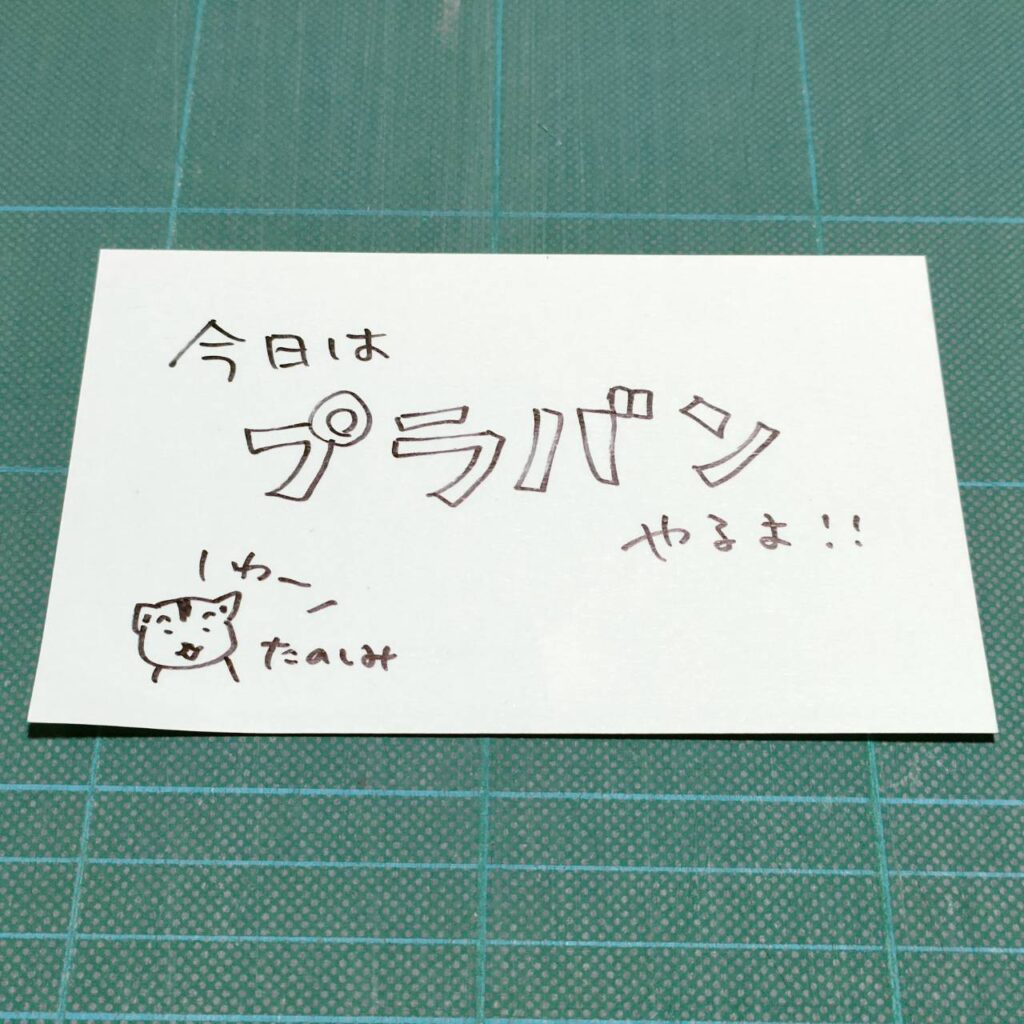 今日は
プラバン
やるよ!!
わー
たのしみ